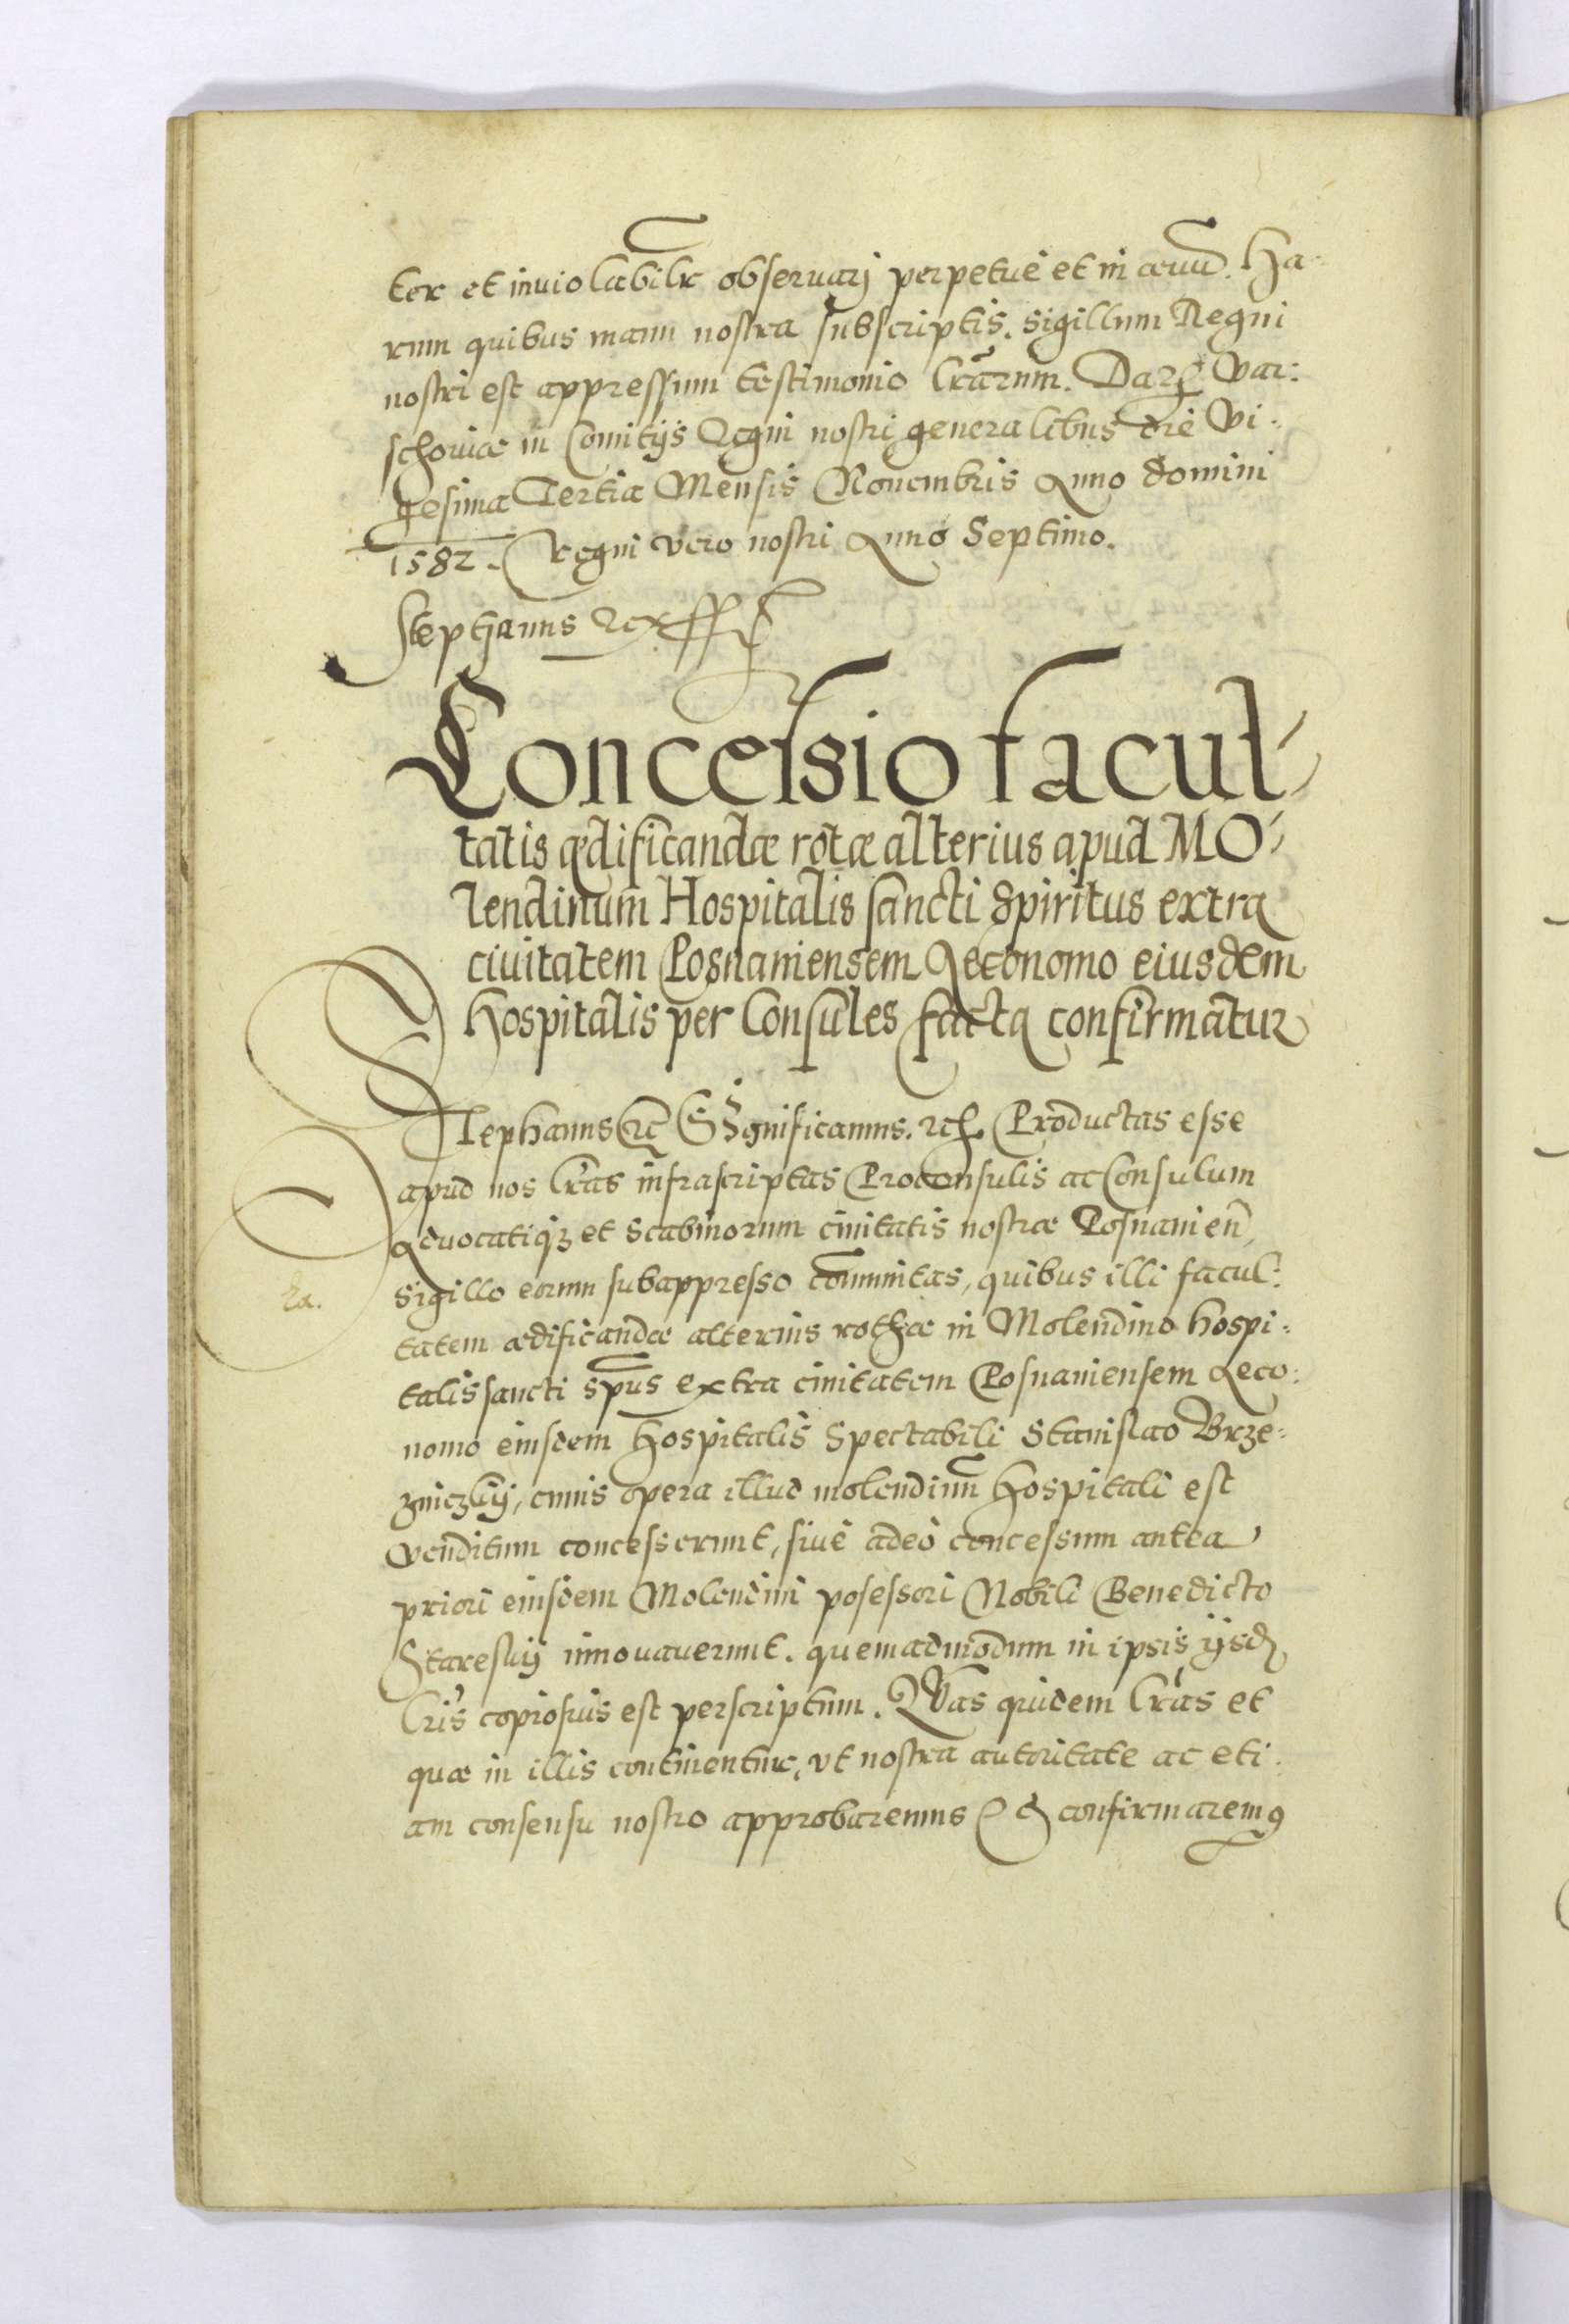 ter et inuiolabilr̃ obseruarj perpetuè et in aeuũ. Ha-
rum quibus manu nostra subscriptis. Sigillum Regni
nostri est appressum testimonio lrãrum. Dat Var:
schouiæ in Comitijs Regni nostri generalibus die Vi-
gesima Tertia Mensis Nouembris Anno domini
1582. Regni vero nostri Anno Septimo.
Stephanus Rex
Concessio facul-
tatis ædificandæ rotæ alterius apud MO-
lendinum Hospitalis sancti Spiritus extra
ciuitatem Posnaniensem Aeconomo eiusdem
Hospitalis per Consules facta confirmatur
Stephanus etc̃ Significamus. etc. Productas esse
apud nos lr̃as infrascriptas Proconsulis ac Consulum
Aduocatiqȝ et Scabinorum ciuitatis nostræ Posnanien̄,
sigillo eorum subappresso com̃unitas, quibus illi facul:
tatem ædificandæ alterius rothæ in Molendino hospi-
talis sancti sp̃us extra ciuitatem Posnaniensem Aeco:
nomo eiusdem Hospitalis Spectabili Stanislao Brze-
zniczkij, cuius opera illud molendinũ Hospitali est
venditum concesserunt, siuè adeò concessum antea
priori eiusdem Molendini posessori Nobili Benedicto
Stareskij innouauerunt. quemadmodum in ipsis ijsd
lr̃is copiosius est perscriptum. Quas quidem lr̃as et
quæ in illis continentur, vt nostra autoritate ac eti-
am consensu nostro approbaremus & confirmaremꝰ